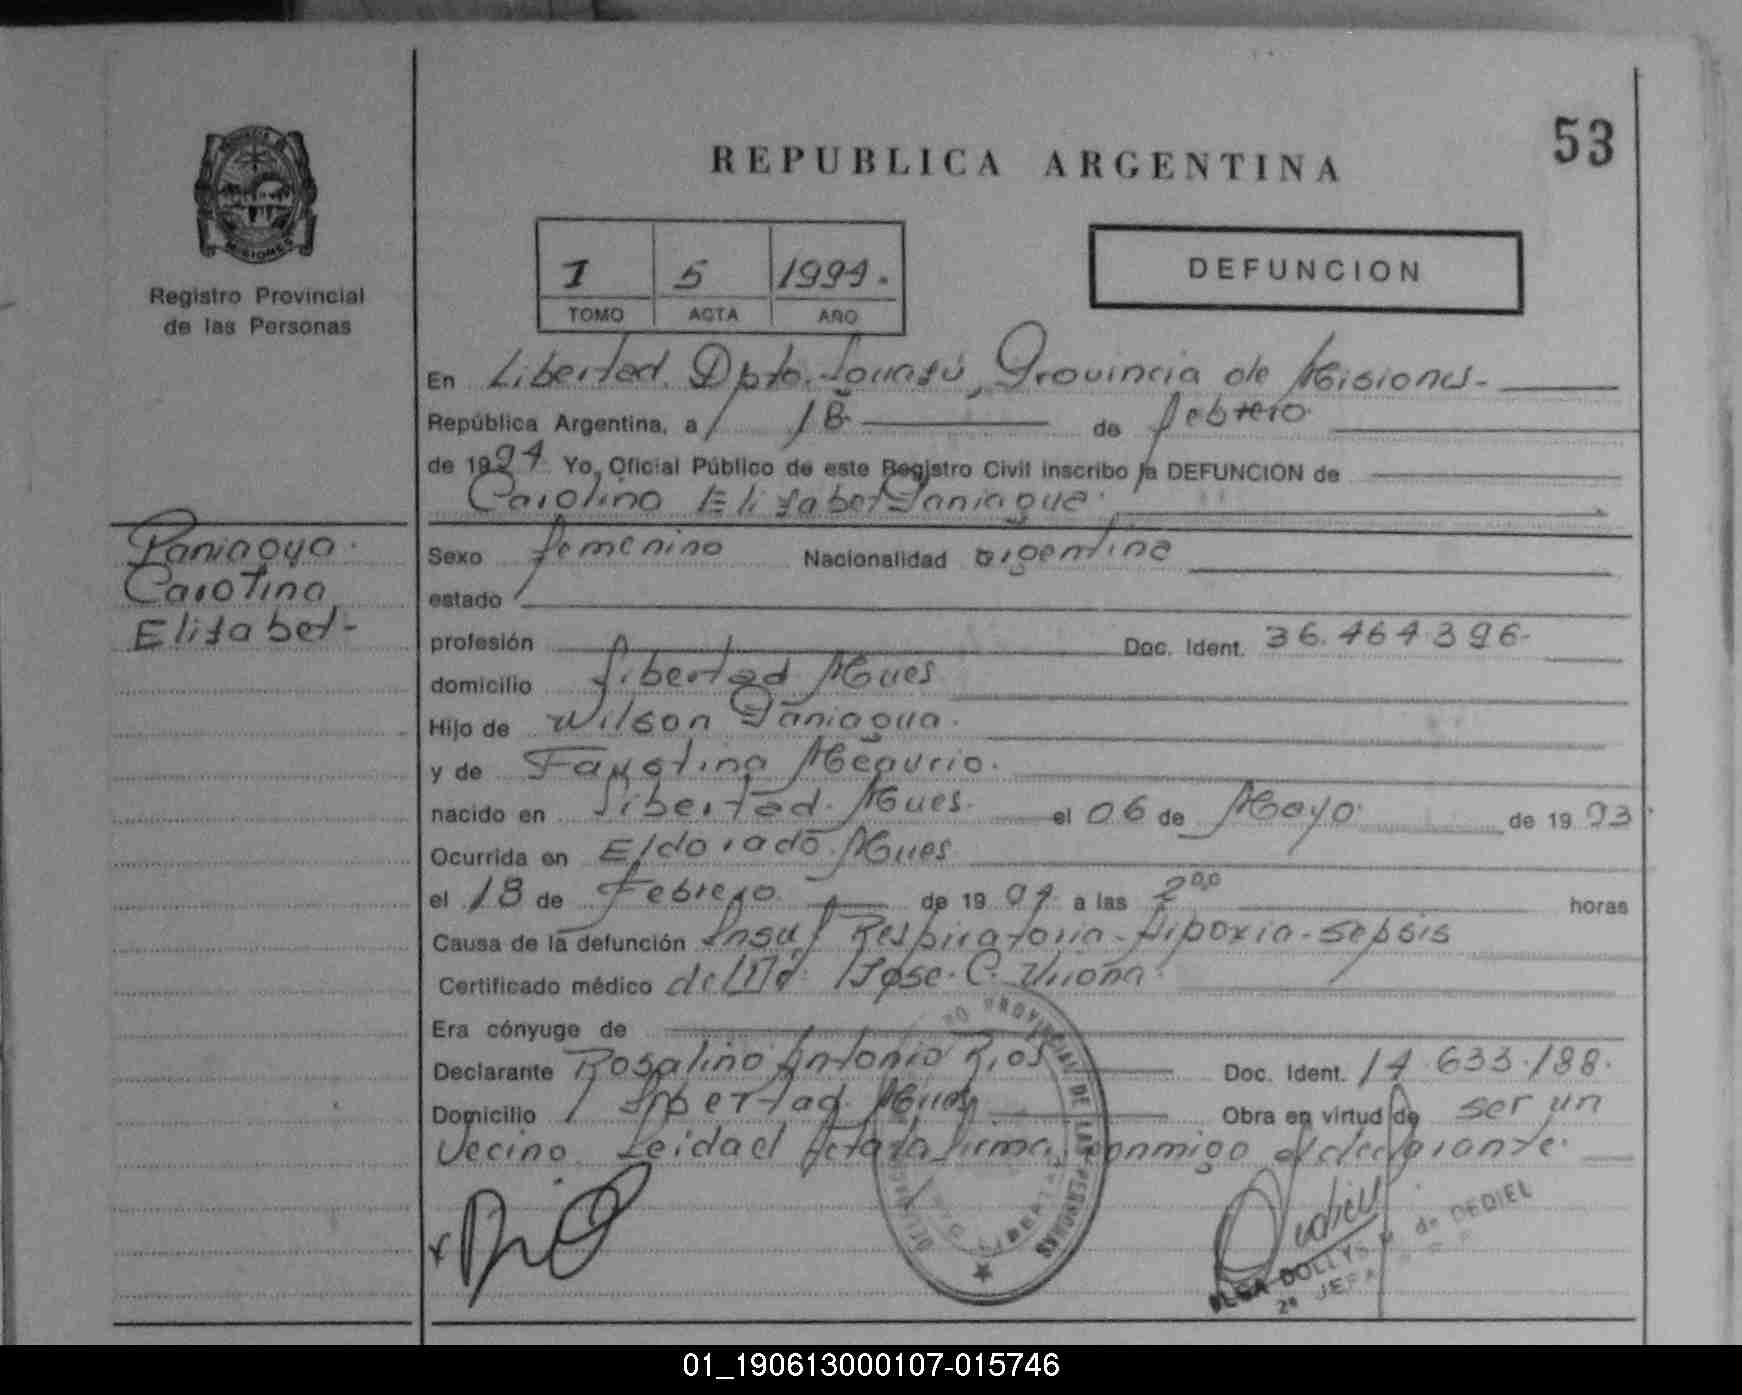 53
REPUBLICA ARGENTINA
MISIONES
Registro Provincial
de las Personas
1 5 1994.
TOMO ACTA AÑO
DEFUNCION
En Libertad. Dpto. Iguazú, Provincia de Misiones-
República Argentina, a 18 de febrero
de 1994 Yo, Oficial Público de este Registro Civil inscribo la DEFUNCION de
Carolina Elizabet Paniagua.
Paniagua.
Carolina
Elizabet-
Sexo femenino Nacionalidad argentina
estado
profesión Doc. Ident. 36.464.396-
domicilio Libertad Mnes
Hijo de Wilson Paniagua.
y de Faustina
nacido en Libertad. Mnes. el 06 de Mayo de 1993
Ocurrida en Eldorado. Mnes
el 18 de Febrero de 1994 a las 2 00 horas
Causa de la defunción Insuf Respiratoria-Hipoxia-sepsis
Certificado médico del Dr. Jose. C.
Era cónyuge de
Declarante Rosalino Antonio Rios Doc. Ident. 14.633.188.
Domicilio Libertad. Mnes Obra en virtud de ser un
Vecino. Leida el Acta la firma conmigo el declarante.
PROVINCIAL DE LAS PERSONAS
OLGA DOLLYS de DEDIEL
2ª JEFA
01_190613000107-015746